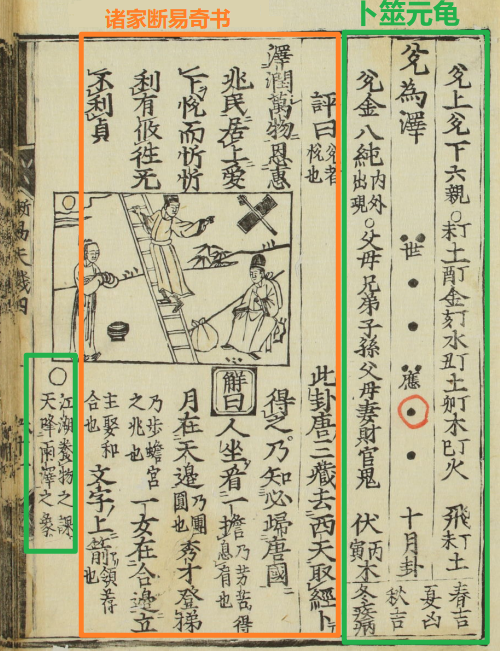 诸家断易奇书
卜筮元龟
兊上兊下六親○未丁土酉丁金亥丁水丑丁土夘丁木巳丁火 飛丁未土 春吉
夏凶
兊為澤 世 應 十月卦 秋吉
兊金八純內外出現○父母兄弟子孫父母妻財官鬼 伏丙寅木 冬疾病
評曰兊者悅也
此卦唐三藏去西天取經卜テ
澤潤萬物恩惠
得之乃知必歸唐國ニ
兆民居上愛
觧曰
人坐看一擔乃劳苦得息肩也
下悅而忻忻
月在天邊乃團圓也秀才登梯
利有攸徃无
乃步蟾宮之兆也一女在合邊立
不利貞
主娶和合也文字上箭領荐也
○江湖養物之課
天降雨澤之象
断易天機四